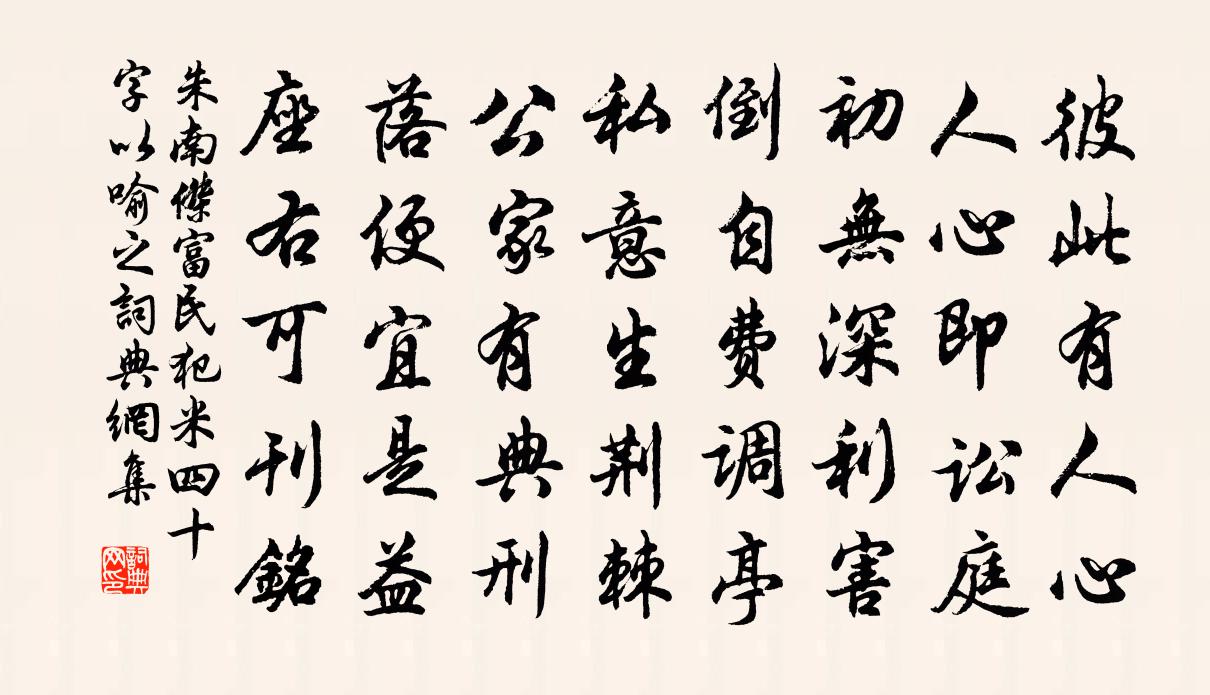 彼此有人心
人心即讼庭
初無深利害
倒自费调亭
私意生荆棘
公家有典刑
落便宜是益
座右可刊銘
朱南傑富民犯米四十
字以喻之詞典網集
詞典网印